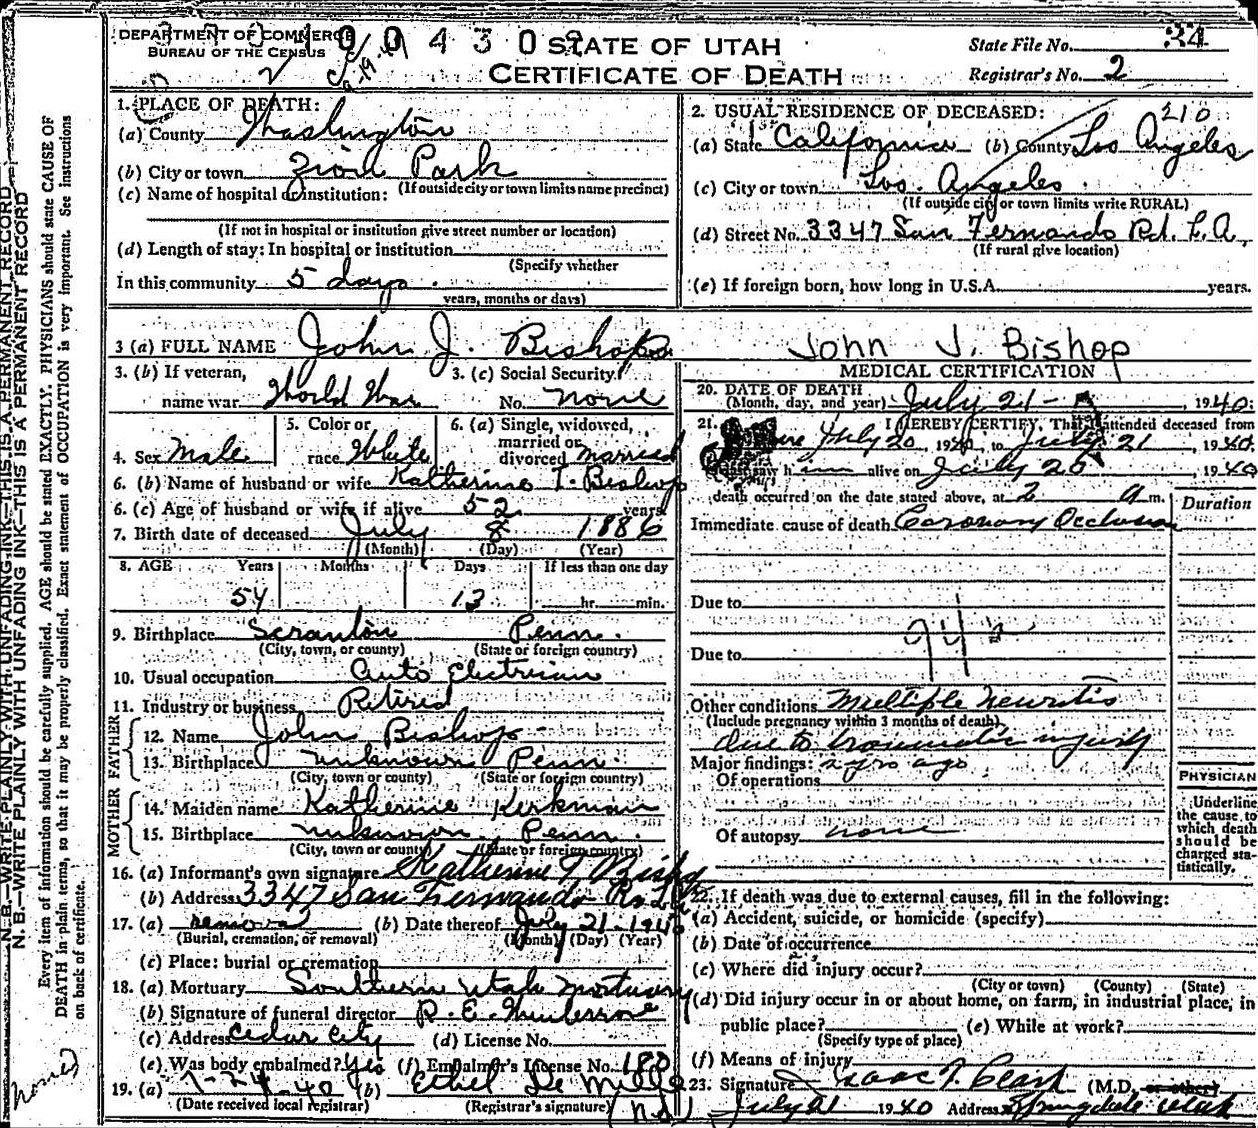 DEPARTMENT OF COMMERCE
BUREAU OF THE CENSUS
0 4 3 0
STATE OF UTAH
CERTIFICATE OF DEATH
State File No. 34
Registrar's No. 2
N. B.—WRITE PLAINLY WITH UNFADING INK—THIS IS A PERMANENT RECORD
N. B.—WRITE PLAINLY WITH UNFADING INK—THIS IS A PERMANENT RECORD
Every item of information should be carefully supplied. AGE should be stated EXACTLY. PHYSICIANS should state CAUSE OF
DEATH in plain terms, so that it may be properly classified. Exact statement of OCCUPATION is very important. See instructions
on back of certificate.
1. PLACE OF DEATH:
(a) County Washington
(b) City or town Zion Park
(If outside city or town limits name precinct)
(c) Name of hospital or institution:
(If not in hospital or institution give street number or location)
(d) Length of stay: In hospital or institution
(Specify whether
In this community 5 days
years, months or days)
2. USUAL RESIDENCE OF DECEASED: 210
(a) State California (b) County Los Angeles
(c) City or town Los Angeles
(If outside city or town limits write RURAL)
(d) Street No. 3347 San Fernando Rd. L.A.
(If rural give location)
(e) If foreign born, how long in U.S.A. years.
3 (a) FULL NAME John J. Bishop
John J. Bishop
3. (b) If veteran,
name war World War
3. (c) Social Security
No. none
4. Sex Male
5. Color or
race White
6. (a) Single, widowed,
married or
divorced married
6. (b) Name of husband or wife Katherine T. Bishop
6. (c) Age of husband or wife if alive 52 years
7. Birth date of deceased July 8 1886
(Month) (Day) (Year)
8. AGE Years Months Days If less than one day
54 13 hr. min.
9. Birthplace Scranton Penn.
(City, town, or county) (State or foreign country)
10. Usual occupation Auto Electrician
11. Industry or business Retired
FATHER
12. Name John Bishop
13. Birthplace unknown Penn.
(City, town or county) (State or foreign country)
MOTHER
14. Maiden name Katherine Kerkman
15. Birthplace unknown Penn.
(City, town or county) (State or foreign country)
16. (a) Informant's own signature Katherine T Bishop
(b) Address 3347 San Fernando Rd L.A.
17. (a) removal (b) Date thereof July 21-1940
(Burial, cremation, or removal) (Month) (Day) (Year)
(c) Place: burial or cremation
18. (a) Mortuary Southern Utah Mortuary
(b) Signature of funeral director R. E.
(c) Address Cedar City (d) License No.
(e) Was body embalmed? Yes (f) Embalmer's License No. 180
19. (a) 7-24-40 (b) Ethel De Mille
(Date received local registrar) (Registrar's signature)
MEDICAL CERTIFICATION
20. DATE OF DEATH
(Month, day, and year) July 21- , 1940
21. I HEREBY CERTIFY, That I attended deceased from
July 20, 1940, to July 21, 1940
last saw him alive on July 20, 1940
death occurred on the date stated above, at 2 a m.
Duration
Immediate cause of death Coronary Occlusion
Due to
94
Due to
Other conditions Multiple neuritis
(Include pregnancy within 3 months of death)
due to traumatic injury
Major findings: 2 yrs ago
Of operations
Of autopsy none
PHYSICIAN
Underline
the cause to
which death
should be
charged sta-
tistically.
22. If death was due to external causes, fill in the following:
(a) Accident, suicide, or homicide (specify)
(b) Date of occurrence
(c) Where did injury occur?
(City or town) (County) (State)
(d) Did injury occur in or about home, on farm, in industrial place, in
public place? (e) While at work?
(Specify type of place)
(f) Means of injury
23. Signature Isaac J. Clark (M.D. or other)
July 21 1940 Address Springdale Utah